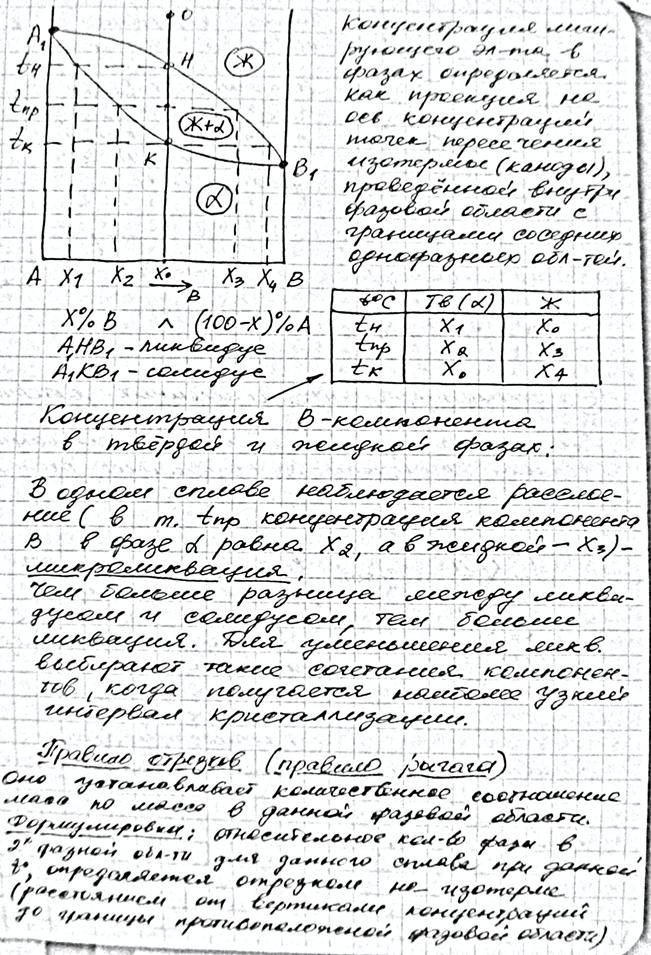 O
A₁
tн
H
Ж
tпр
Ж+α
tк
K
B₁
α
A X₁ X₂ X₀ X₃ X₄ B
B
X% B ^ (100-X)% A
AHB₁ - ликвидус
A₁KB₁ - солидус
Концентрация леги-
рующего эл-та в
фазах определяется
как проекция на
ось концентраций
точек пересечения
изотермы (каноды),
проведённой внутри
фазовой области с
границами соседних
однофазных обл-тей.
t°C Тв (α) Ж
tн X₁ X₀
tпр X₂ X₃
tк X₀ X₄
Концентрация B-компонента
в твёрдой и жидкой фазах:
В одном сплаве наблюдается расслое-
ние (в т. tпр концентрация компонента
B в фазе α равна X₂, а в жидкой - X₃) -
микроликвация.
Чем больше разница между ликви-
дусом и солидусом, тем больше
ликвация. Для уменьшения ликв.
выбирают такие сочетания компонен-
тов, когда получается наиболее узкий
интервал кристаллизации.
Правило отрезков (правило рычага)
Оно устанавливает количественное соотношение
масс по массе в данной фазовой области.
Формулировка: относительное кол-во фазы в
2ˣ фазной обл-ти для данного сплава при данной
t°, определяется отрезком на изотерме
(расстоянием от вертикали концентраций
до границы противоположной фазовой области)